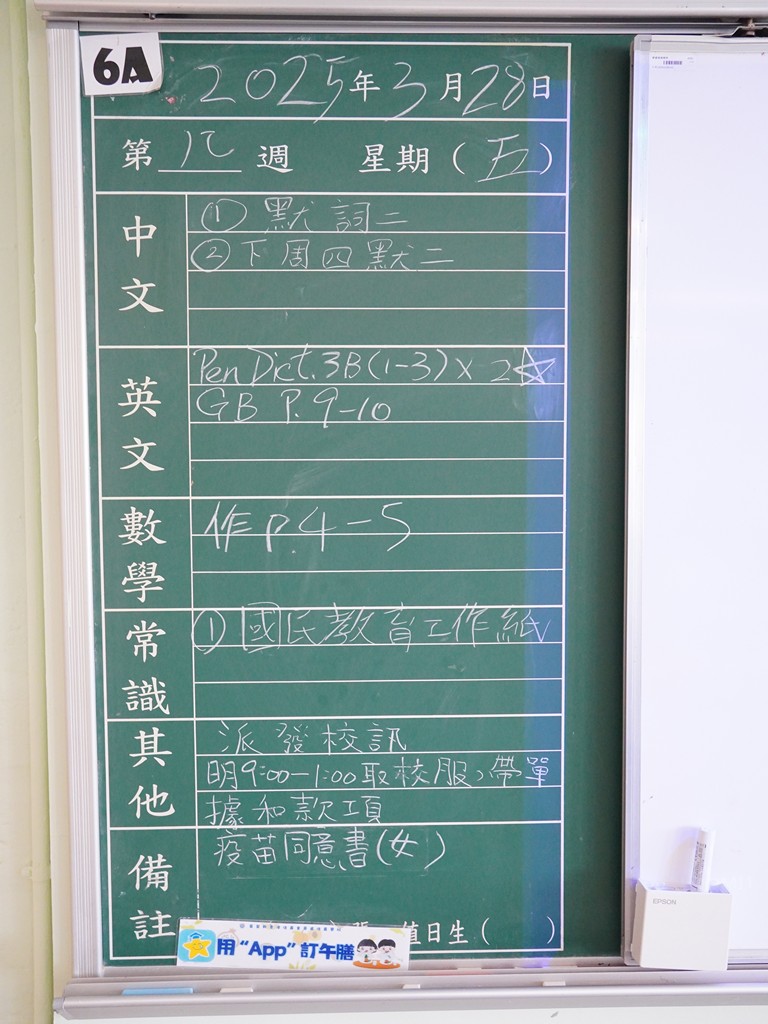 6A
2025年3月28日
第 週 星期(五)
中文
① 默詞二
② 下周四默二
英文
Pen Dict. 3B(1-3) x 2☆
GB P. 9-10
數學
作 P. 4-5
常識
① 國民教育工作紙
其他
派發校訊
明9:00-1:00取校服、帶單
據和款項
備註
疫苗同意書(女)
值日生( )
用“App”訂午膳
EPSON